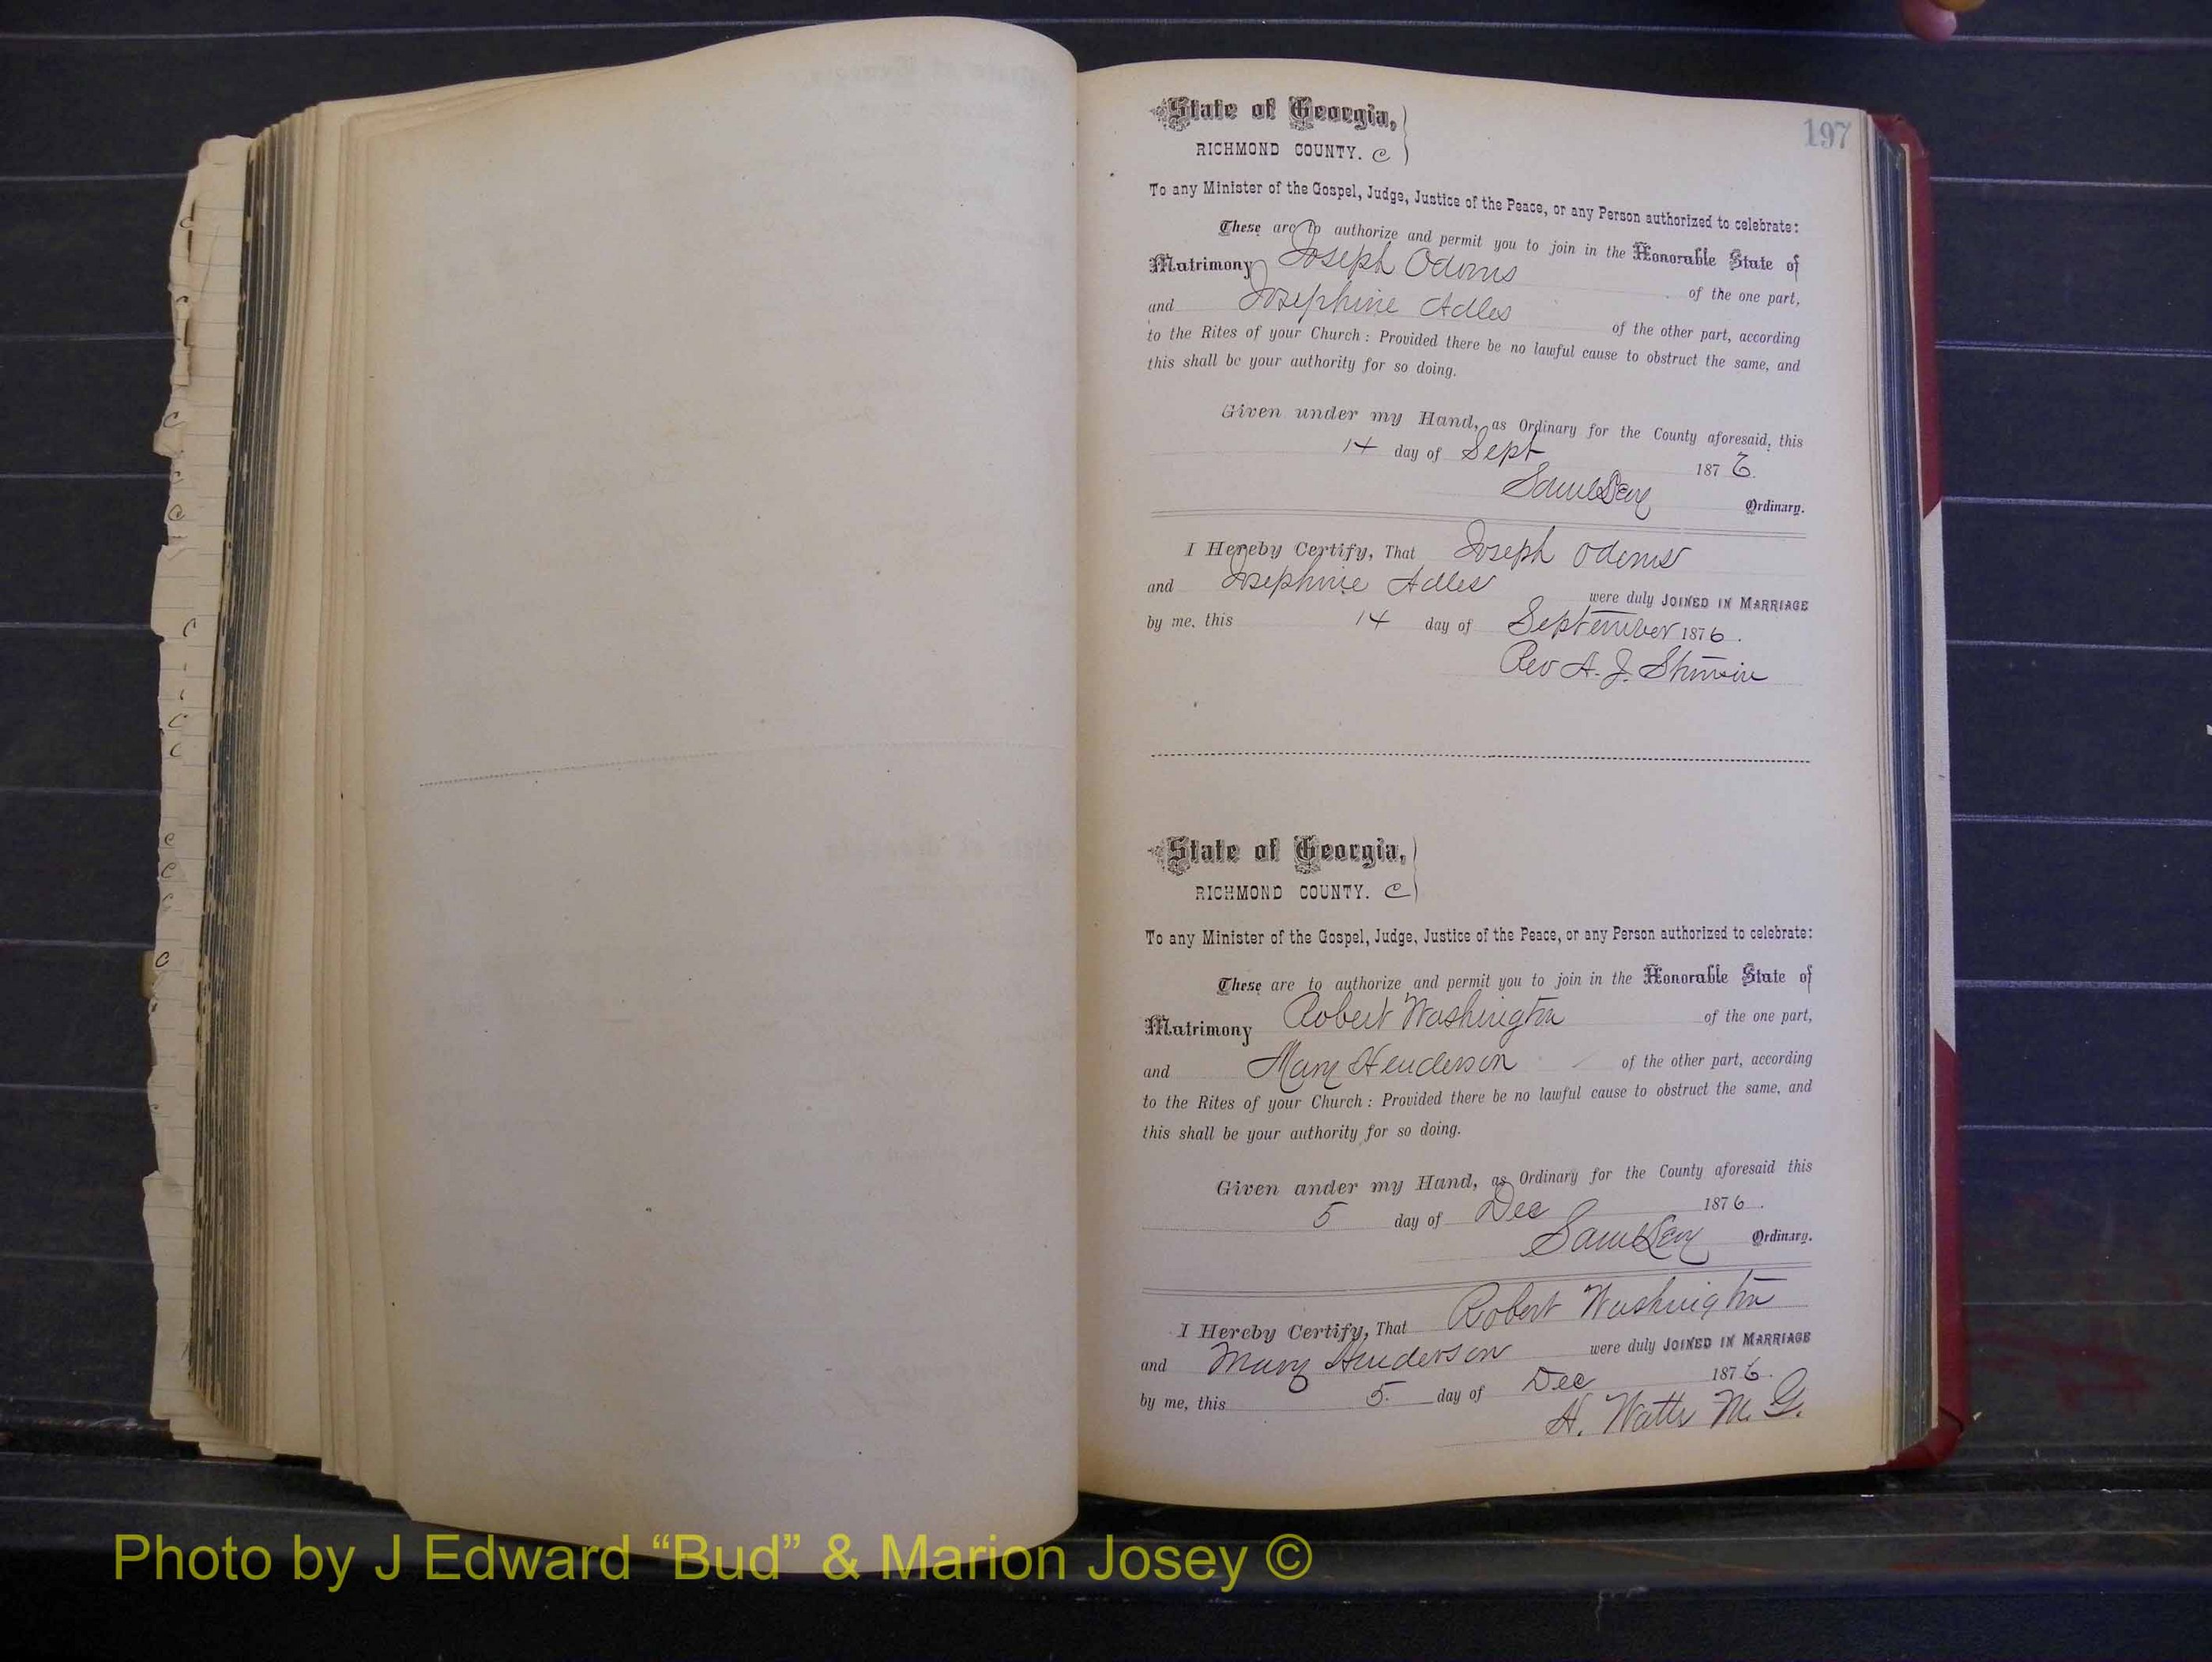 197
State of Georgia,
RICHMOND COUNTY. C
To any Minister of the Gospel, Judge, Justice of the Peace, or any Person authorized to celebrate:
These are to authorize and permit you to join in the Honorable State of
Matrimony Joseph Odoms of the one part,
and Josephine Adles of the other part, according
to the Rites of your Church: Provided there be no lawful cause to obstruct the same, and
this shall be your authority for so doing.
Given under my Hand, as Ordinary for the County aforesaid, this
14 day of Sept 1876.
Saml Levy Ordinary.
I Hereby Certify, That Joseph Odoms
and Josephine Adles were duly JOINED IN MARRIAGE
by me, this 14 day of September 1876.
Rev A. J.
State of Georgia,
RICHMOND COUNTY. C
To any Minister of the Gospel, Judge, Justice of the Peace, or any Person authorized to celebrate:
These are to authorize and permit you to join in the Honorable State of
Matrimony Robert Washington of the one part,
and Mary Henderson of the other part, according
to the Rites of your Church: Provided there be no lawful cause to obstruct the same, and
this shall be your authority for so doing.
Given under my Hand, as Ordinary for the County aforesaid this
5 day of Dec 1876.
Saml Levy Ordinary.
I Hereby Certify, That Robert Washington
and Mary Henderson were duly JOINED IN MARRIAGE
by me, this 5. day of Dec 1876.
H. Watts M. G.
Photo by J Edward “Bud” & Marion Josey ©